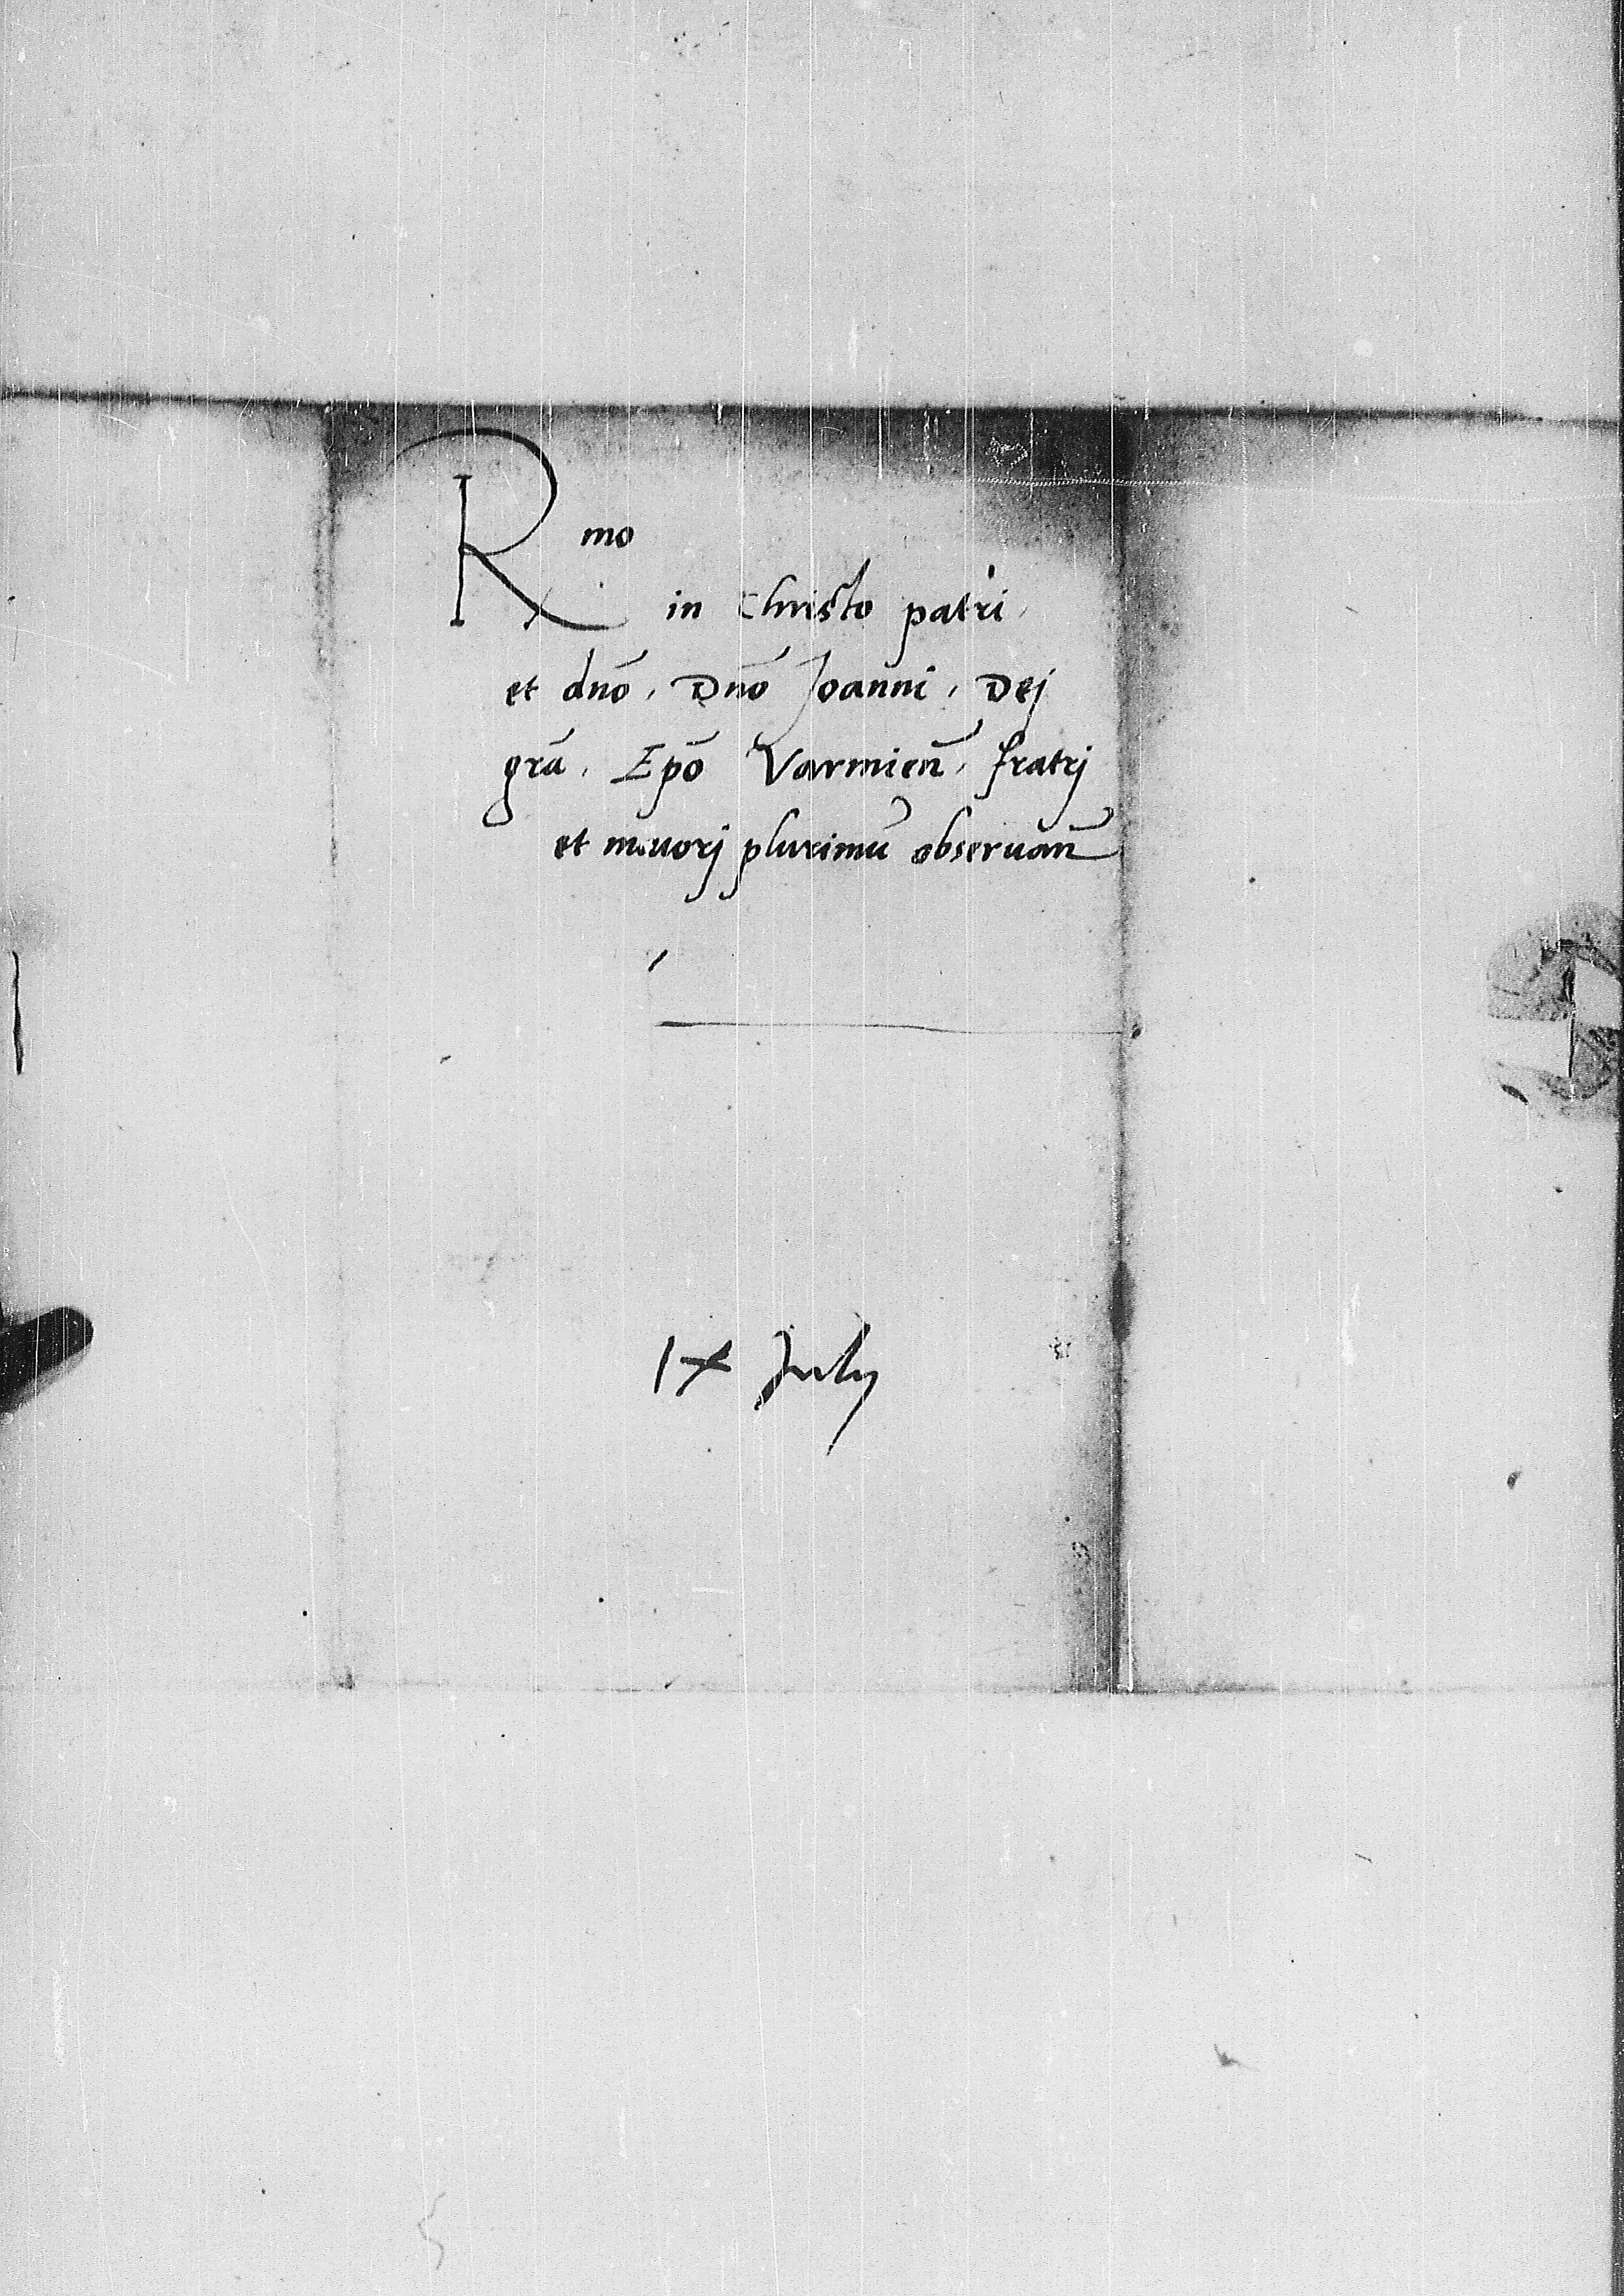 Rmo
in Christo patri.
et dnō. Dnō Joanni. Dej
grā. Epō Varmien̄. fratrj
et maiorj plurimū obseruan̄
1x July